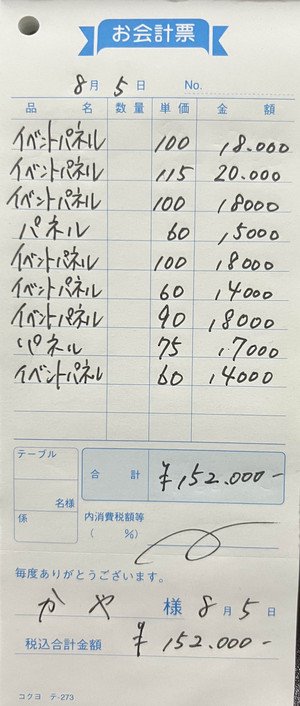 お会計票
8月5日 No.
品名 数量 単価 金額
イベントパネル 100 18.000
イベントパネル 115 20.000
イベントパネル 100 18000
パネル 60 15000
イベントパネル 100 18000
イベントパネル 60 14000
イベントパネル 90 18000
パネル 75 17000
イベントパネル 60 14000
テーブル
合計 ¥152.000-
名様
係 内消費税額等
( %)
毎度ありがとうございます。
かや 様 8月5日
税込合計金額 ¥152.000-
コクヨ テ-273